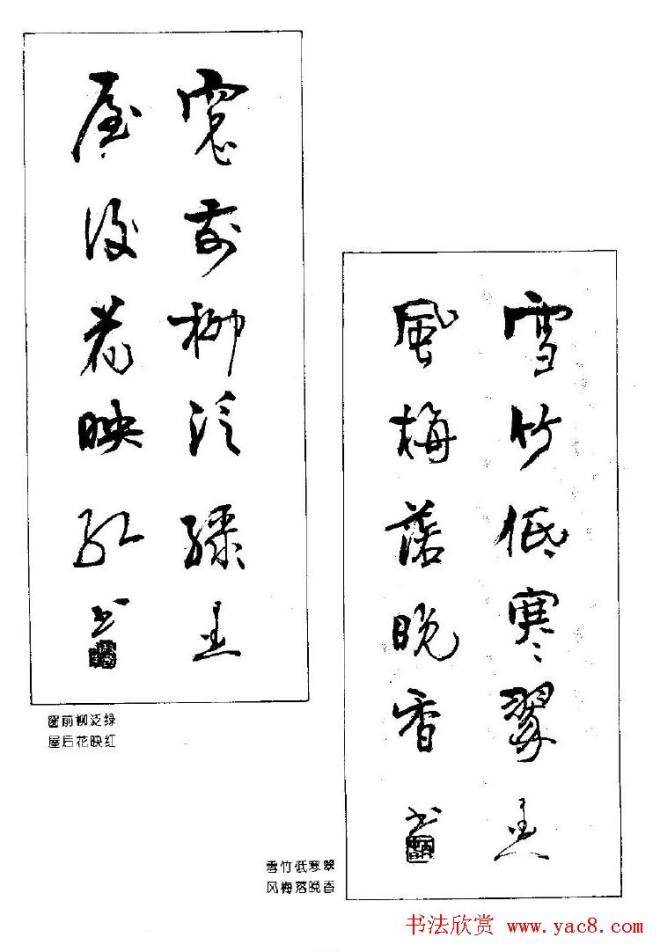 窗前柳泛绿
屋後花映红
窗前柳泛绿
屋后花映红
雪竹低寒翠
風梅落晚香
雪竹低寒翠
风梅落晚香
书法欣赏 www.yac8.com